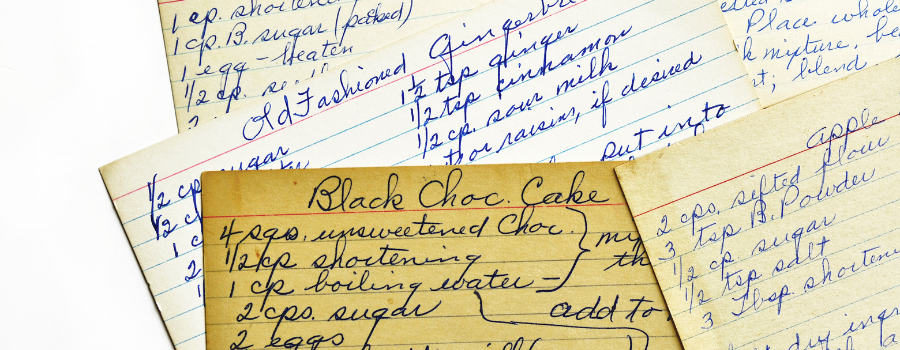 1 cp. shortening
1 cp. B. sugar (packed)
1 egg - beaten
1/2 cp.
Old Fashioned Gingerbre
1/2 cp sugar
1/2 c
1 c
2
1 1/2 tsp ginger
1/2 tsp cinnamon
1/2 cp. sour milk
or raisins, if desired
put into
Place whole
k mixture, be
t; blend
Black Choc. Cake
4 sqs. unsweetened Choc.
1/2 cp shortening
1 cp boiling water -
2 cps. sugar
2 eggs
add to
apple
2 cps. sifted flour
3 tsp B. Powder
1/2 cp sugar
1/2 tsp salt
3 Tbsp. shorteni
dry ingr